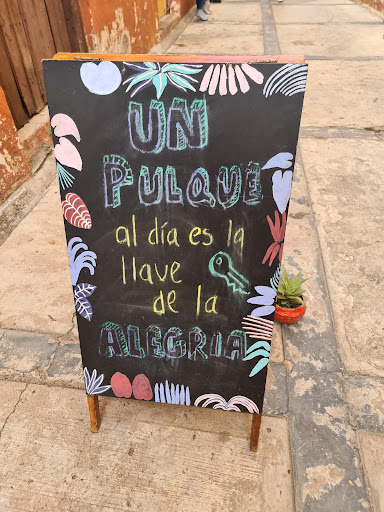 UN
PULQUE
al día es la
llave
de la
ALEGRIA